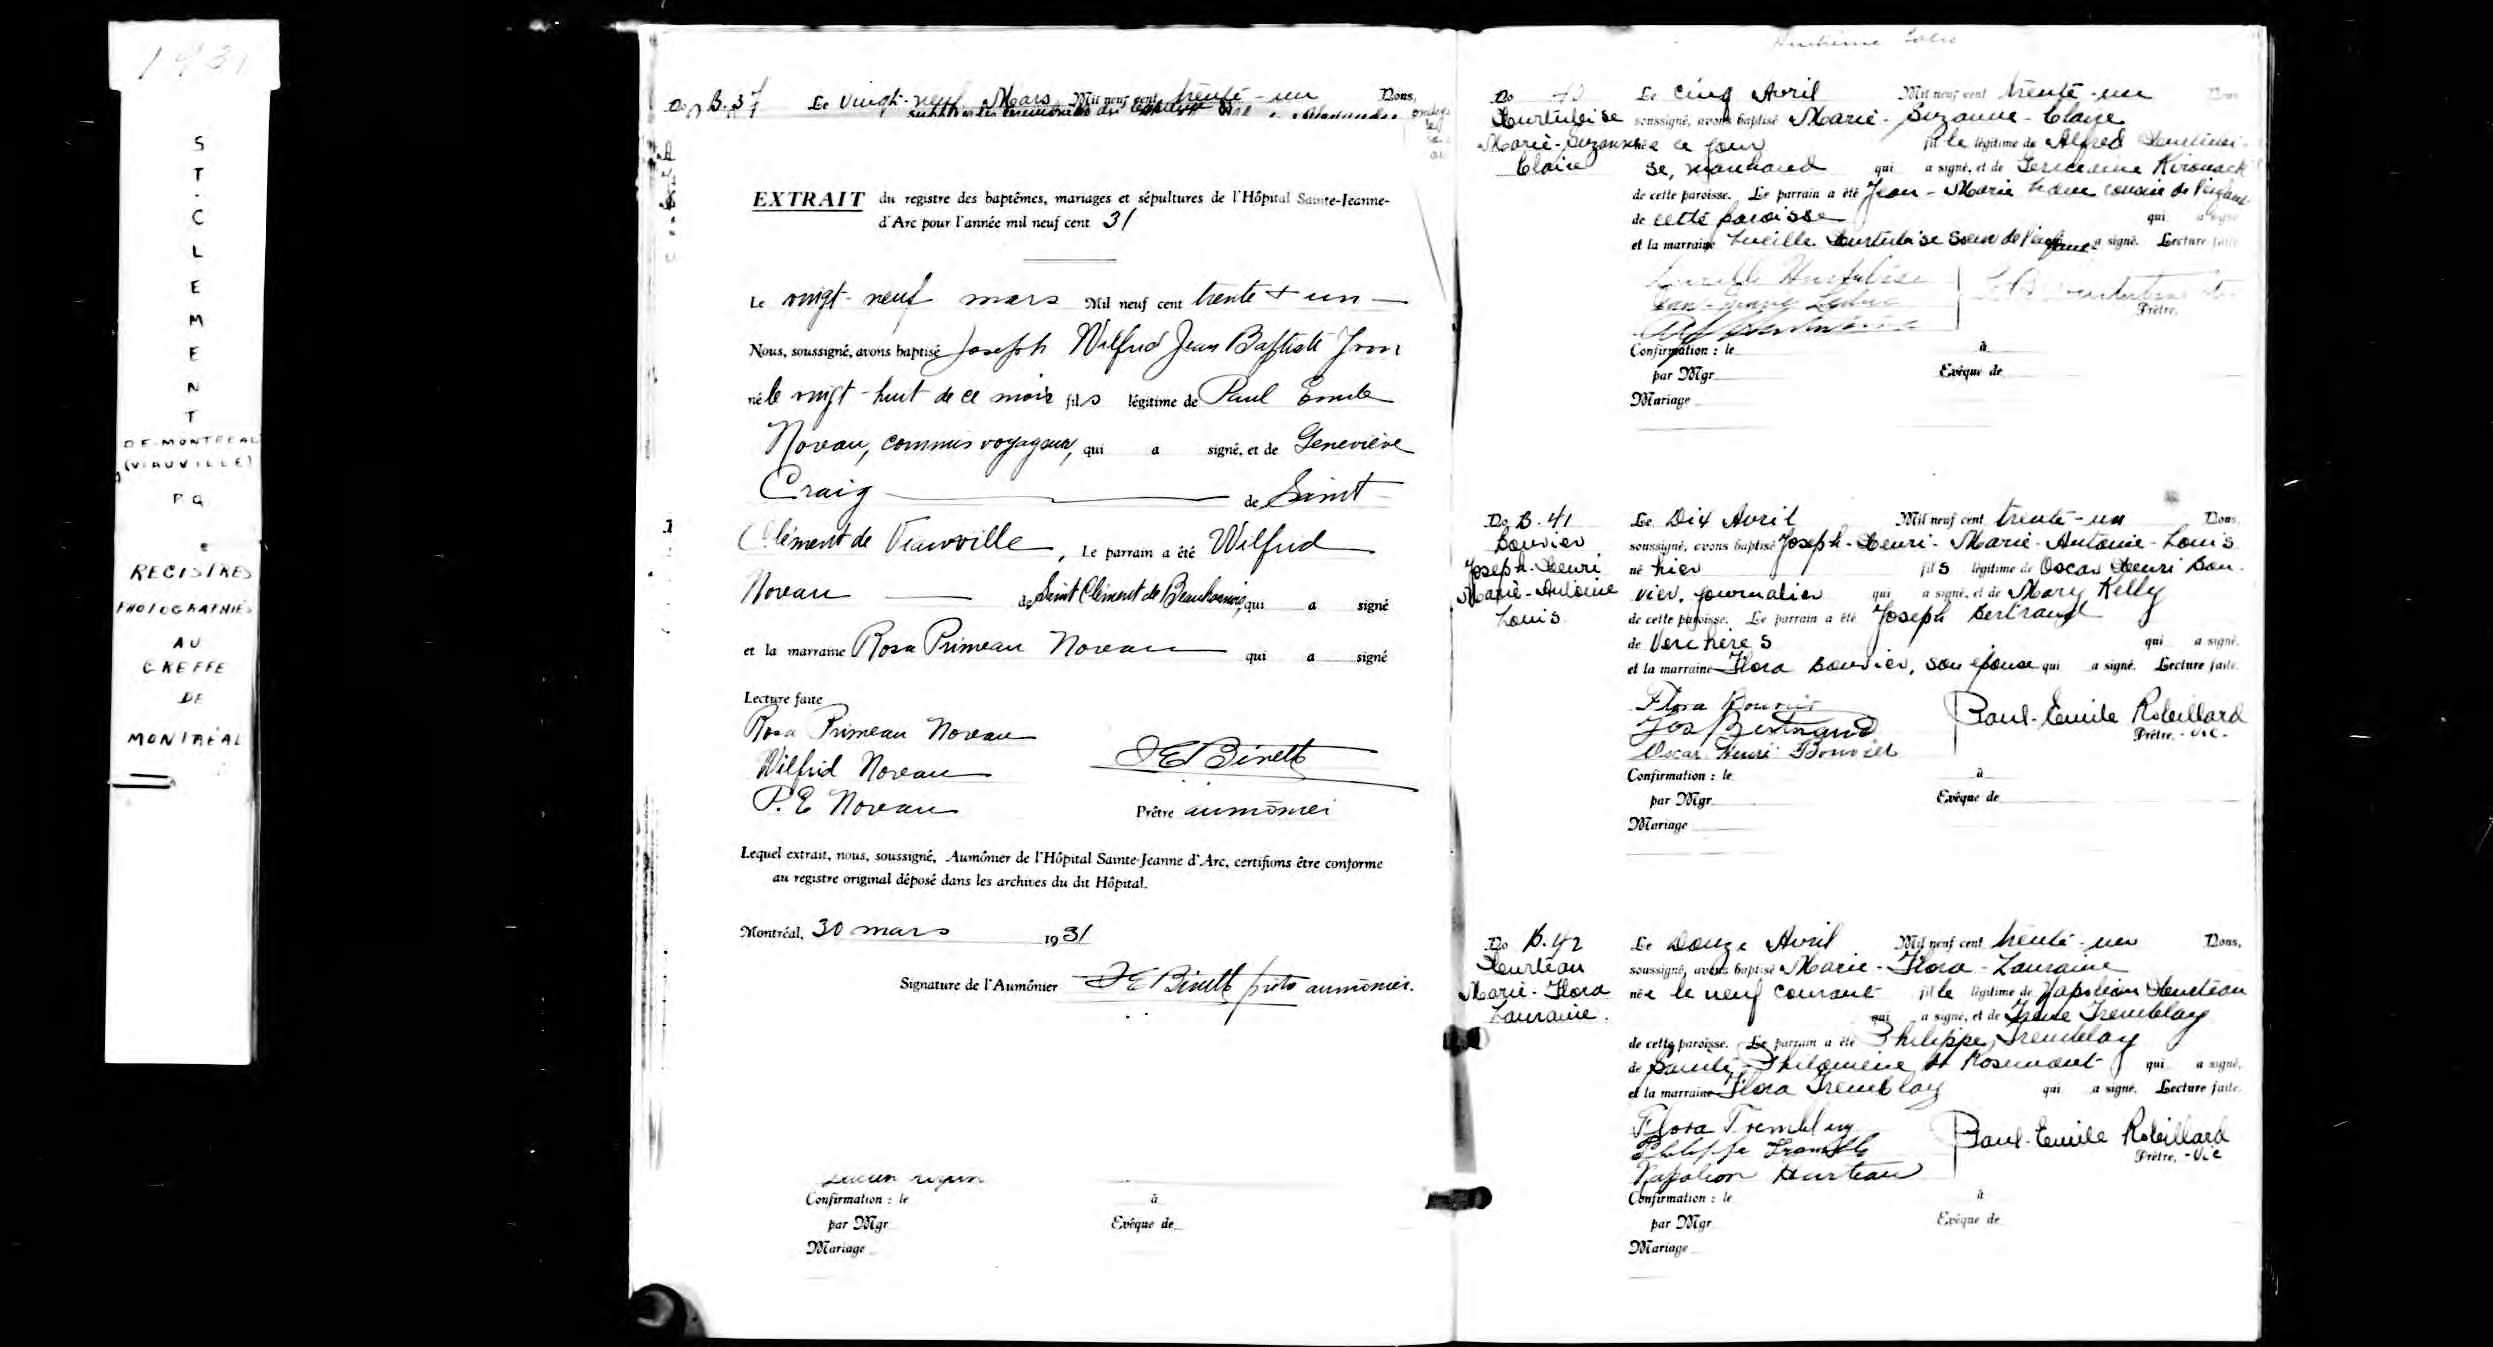 1931
ST. CLEMENT
DE-MONTREAL
(VIAUVILLE)
P Q
REGISTRES
PHOTOGRAPHIÉS
AU
GREFFE
DE
MONTRÉAL
No B.37 Le vingt-neuf Mars Mil neuf cent trente-un Nous,
EXTRAIT du registre des baptêmes, mariages et sépultures de l'Hôpital Sainte-Jeanne-
d'Arc pour l'année mil neuf cent 31
Le vingt-neuf mars Mil neuf cent trente + un
Nous, soussigné, avons baptisé Joseph Wilfrid Jean Baptiste
né le vingt-huit de ce mois fils légitime de Paul Emile
Noreau, commis voyageur, qui a signé, et de Geneviève
Craig de Saint
Clément de Viauville, Le parrain a été Wilfrid
Noreau de Saint Clément de Beauharnois, qui a signé
et la marraine Rosa Primeau Noreau qui a signé
Lecture faite
Rosa Primeau Noreau
Wilfrid Noreau
P. E Noreau
J E Binette
Prêtre aumônier
Lequel extrait, nous, soussigné, Aumônier de l'Hôpital Sainte-Jeanne d'Arc, certifions être conforme
au registre original déposé dans les archives du dit Hôpital.
Montréal, 30 mars 1931
Signature de l'Aumônier J E Binette ptre aumônier.
Confirmation : le à
par Mgr Evêque de
Mariage
No 40 Le cinq Avril Mil neuf cent trente-un Nous
Hurtubise soussigné, avons baptisé Marie-Suzanne-Claire
Marie-Suzanne née ce jour fille légitime de Alfred Hurtubi-
Claire se, marchand qui a signé, et de Kirouack
de cette paroisse. Le parrain a été Jean-Marie cousin de l'enfant
de cette paroisse qui a signé
et la marraine Lucille Hurtubise soeur de l'enfant a signé. Lecture faite.
Lucille Hurtubise
Prêtre.
Confirmation : le à
par Mgr Evêque de
Mariage
No B.41 Le Dix Avril Mil neuf cent trente-un Nous
Bouvier soussigné, avons baptisé Joseph-Henri-Marie-Antoine-Louis
Joseph-Henri né hier fils légitime de Oscar Henri Bou-
Marie-Antoine vier, journalier qui a signé, et de Mary Kelly
Louis de cette paroisse. Le parrain a été Joseph Bertrand
de Verchères qui a signé.
et la marraine Flora Bouvier, son épouse qui a signé. Lecture faite.
Flora Bouvier
Jos Bertrand
Oscar Henri Bouvier
Paul-Emile Robillard
Prêtre. - vic-
Confirmation : le à
par Mgr Evêque de
Mariage
No B.42 Le Douze Avril Mil neuf cent trente-un Nous,
Hurteau soussigné, avons baptisé Marie-Flora-Lauraine
Marie-Flora née le neuf courant fille légitime de Napoléon Hurteau
Lauraine. qui a signé, et de Irène Tremblay
de cette paroisse. Le parrain a été Philippe Tremblay
de Sainte-Philomène de Rosemont qui a signé,
et la marraine Flora Tremblay qui a signé. Lecture faite.
Flora Tremblay
Philippe Tremblay
Napoléon Hurteau
Paul-Emile Robillard
Prêtre, - Vic
Confirmation : le à
par Mgr Evêque de
Mariage